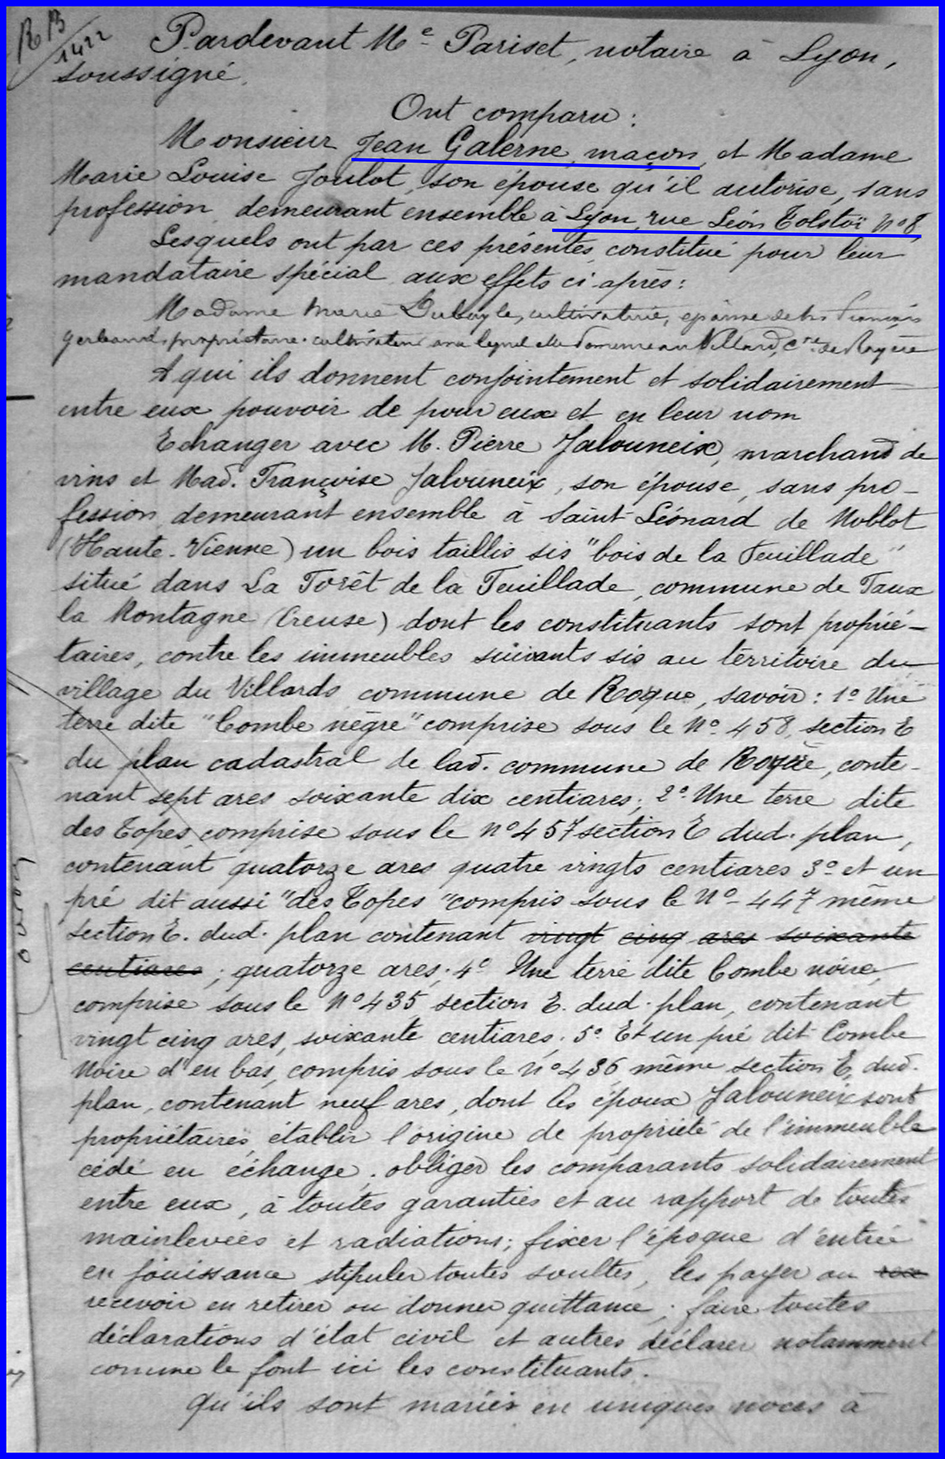 RB
1422
Pardevant Me Pariset, notaire à Lyon,
soussigné.
Ont comparu :
Monsieur Jean Galerne, maçon, et Madame
Marie Louise Joulot, son épouse qu'il autorise, sans
profession, demeurant ensemble à Lyon, rue Léon Tolstoï N°8
Lesquels ont par ces présentes, constitué pour leur
mandataire spécial aux effets ci-après :
Madame Marie Dubayle, cultivatrice, épouse de Mr François
propriétaire-cultivateur avec lequel elle demeure au Villard, Cne de Royère
A qui ils donnent conjointement et solidairement
entre eux pouvoir de pour eux et en leur nom
Echanger avec M. Pierre Jalouneix, marchand de
vins et Mad. Françoise Jalouneix, son épouse, sans pro-
fession, demeurant ensemble à Saint Léonard de Noblot
(Haute-Vienne) un bois taillis sis "bois de la Feuillade"
situé dans La Forêt de la Feuillade, commune de Faux
la Montagne (Creuse) dont les constituants sont proprié-
taires, contre les immeubles suivants sis au territoire du
village du Villards commune de Royère, savoir : 1° Une
terre dite "Combe nègre" comprise sous le N° 458, section E
du plan cadastral de lad. commune de Royère, conte-
nant sept ares soixante dix centiares ; 2° Une terre dite
des Topes, comprise sous le n° 457 section E dud. plan,
contenant quatorze ares quatre vingts centiares 3° et un
pré dit aussi "des Topes" compris sous le N° 447 même
section E. dud. plan contenant vingt cinq ares soixante
centiares ; quatorze ares ; 4° Une terre dite Combe noire,
comprise sous le N° 435 section E. dud. plan, contenant
vingt cinq ares, soixante centiares ; 5° Et un pré dit Combe
Noire d'en bas, compris sous le n° 436 même section E, dud.
plan, contenant neuf ares, dont les époux Jalouneix sont
propriétaires établir l'origine de propriété de l'immeuble
cédé en échange, obliger les comparants solidairement
entre eux, à toutes garanties et au rapport de toutes
mainlevées et radiations ; fixer l'époque d'entrée
en jouissance stipuler toutes soultes, les payer ou
recevoir en retirer ou donner quittance ; faire toutes
déclarations d'état civil et autres déclarer notamment
comme le font ici les constituants.
Qu'ils sont mariés en uniques noces à